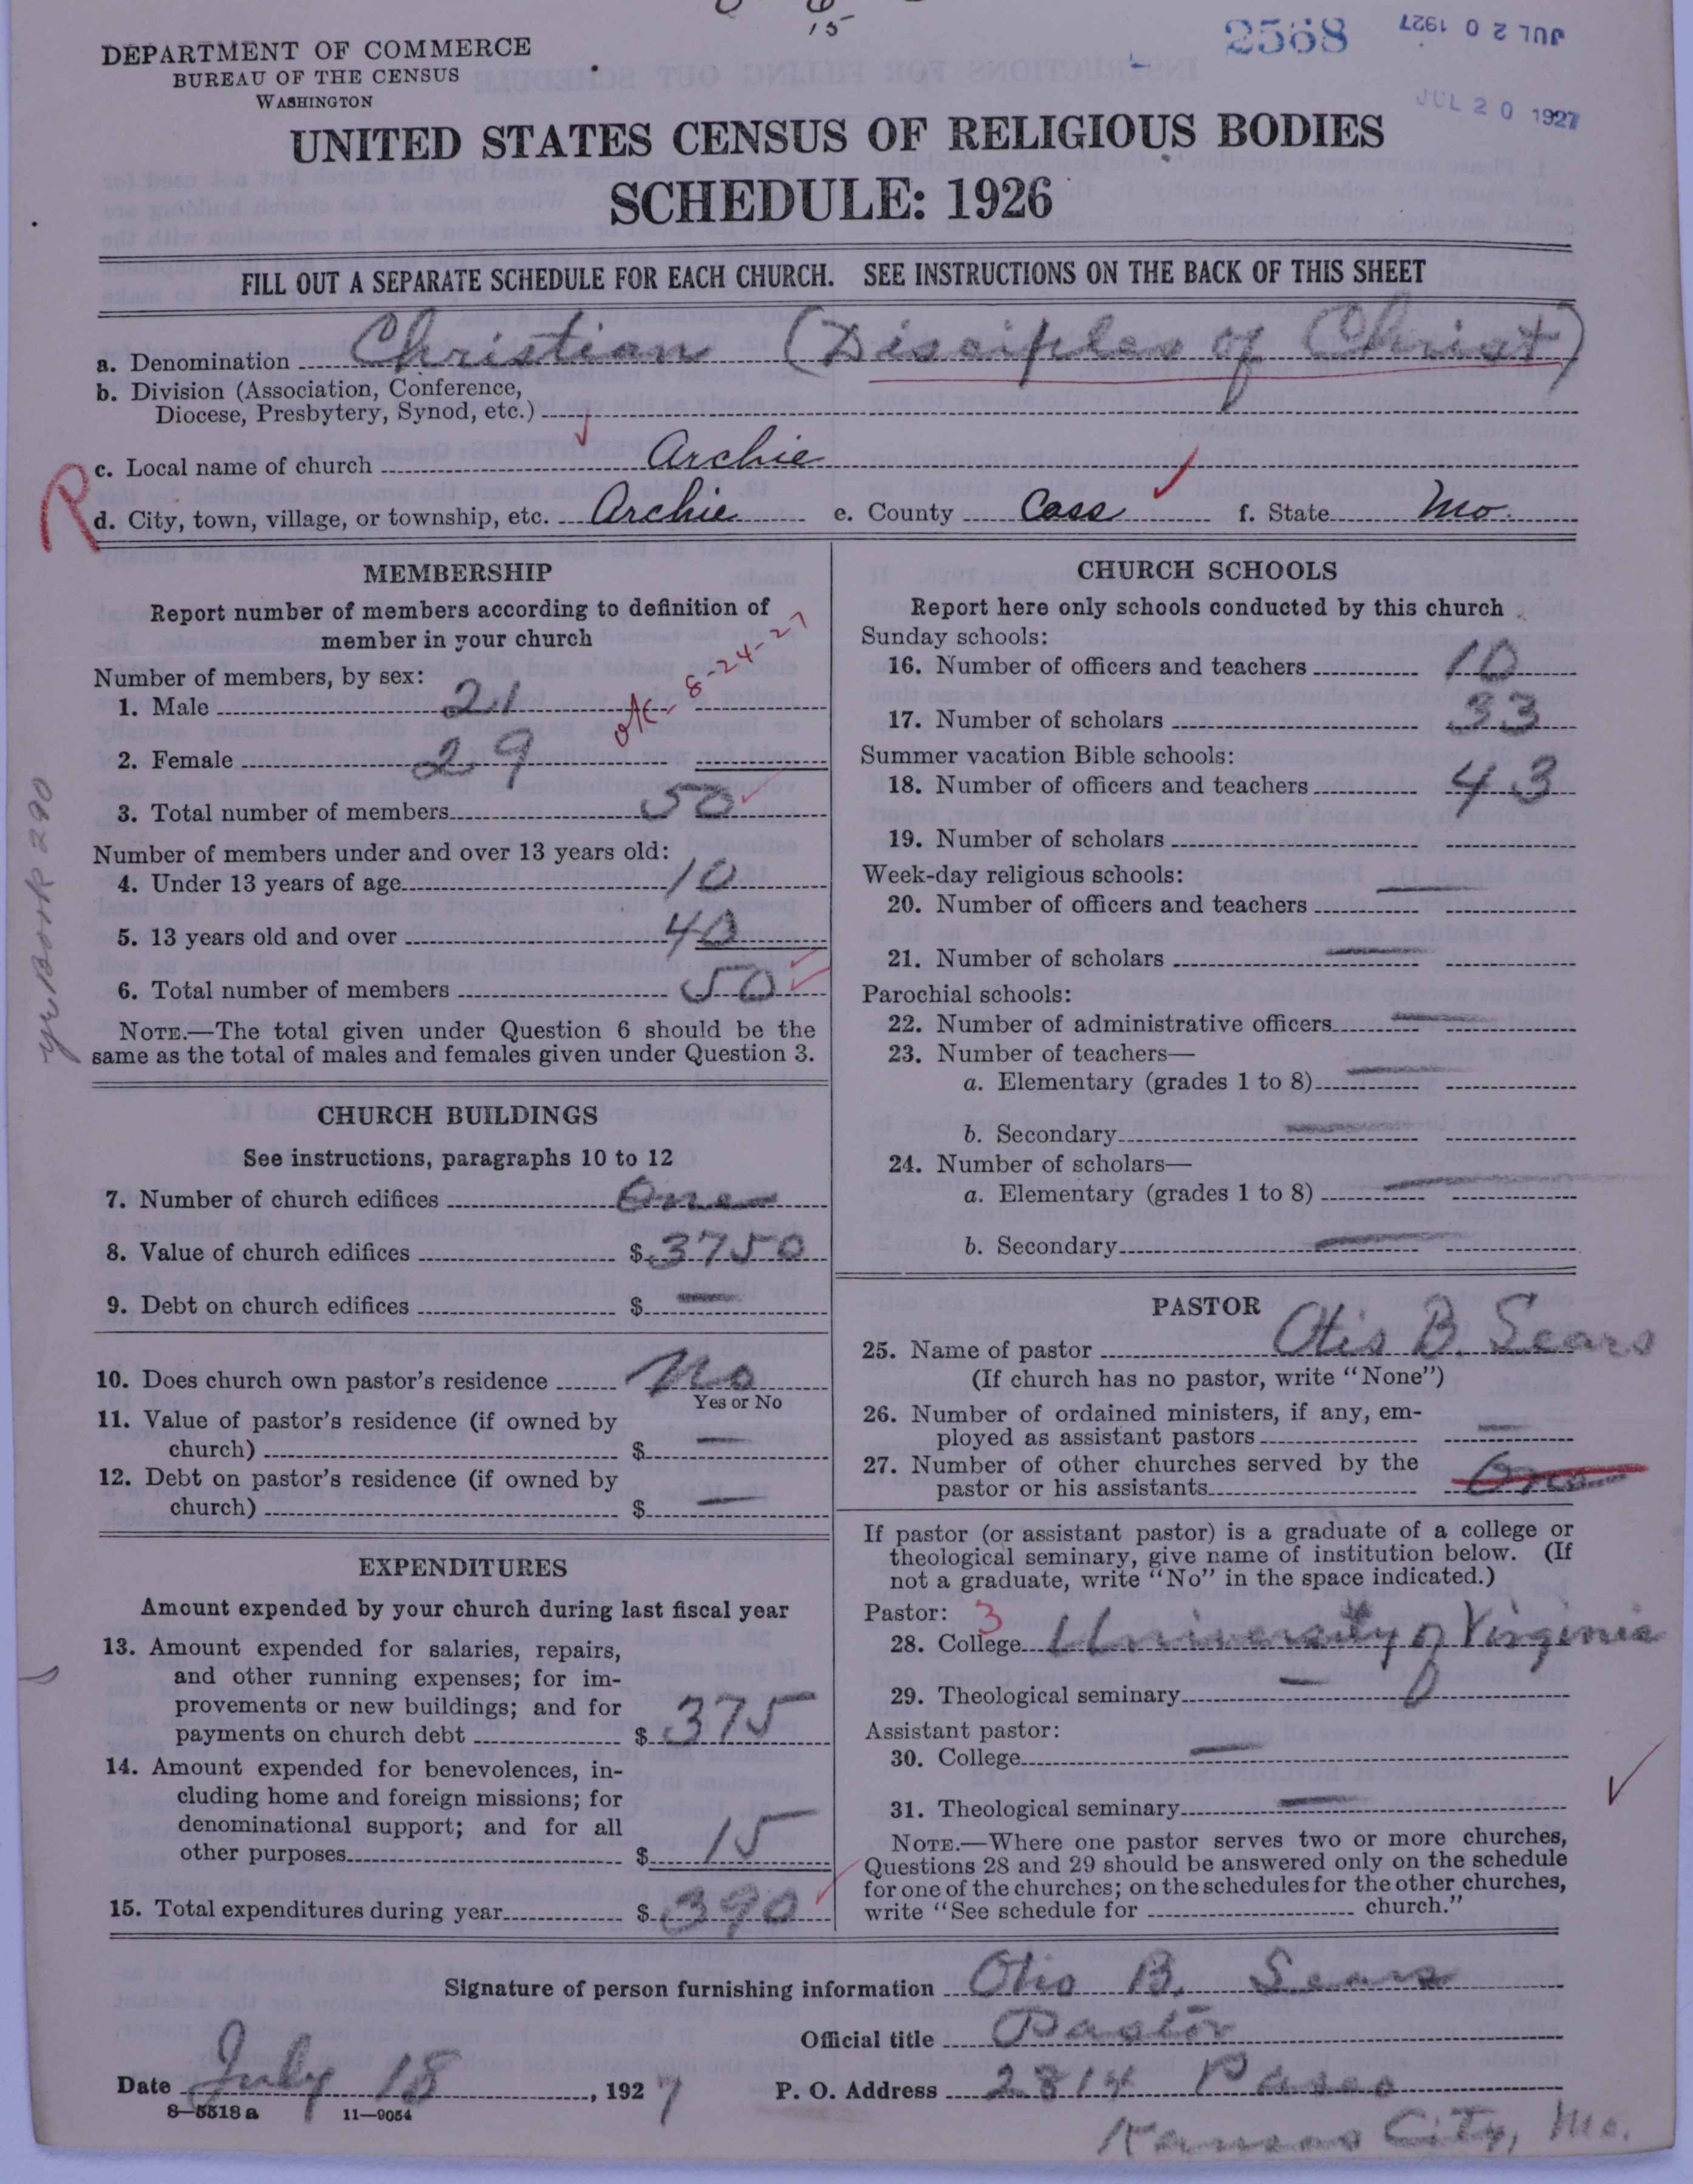 15
2568
JUL 20 1927
JUL 20 1927
DEPARTMENT OF COMMERCE
BUREAU OF THE CENSUS
WASHINGTON
UNITED STATES CENSUS OF RELIGIOUS BODIES
SCHEDULE: 1926
FILL OUT A SEPARATE SCHEDULE FOR EACH CHURCH. SEE INSTRUCTIONS ON THE BACK OF THIS SHEET
a. Denomination Christian (Disciples of Christ)
b. Division (Association, Conference,
Diocese, Presbytery, Synod, etc.)
c. Local name of church Archie
R
d. City, town, village, or township, etc. Archie e. County Cass f. State Mo.
MEMBERSHIP
Report number of members according to definition of
member in your church
Number of members, by sex:
1. Male 21
OK- 8-24-27
2. Female 29
3. Total number of members 50
Number of members under and over 13 years old:
4. Under 13 years of age 10
5. 13 years old and over 40
6. Total number of members 50
NOTE.—The total given under Question 6 should be the
same as the total of males and females given under Question 3.
yr Book 290
CHURCH BUILDINGS
See instructions, paragraphs 10 to 12
7. Number of church edifices One
8. Value of church edifices $ 3750
9. Debt on church edifices $ —
10. Does church own pastor's residence No
Yes or No
11. Value of pastor's residence (if owned by
church) $ —
12. Debt on pastor's residence (if owned by
church) $ —
EXPENDITURES
Amount expended by your church during last fiscal year
13. Amount expended for salaries, repairs,
and other running expenses; for im-
provements or new buildings; and for
payments on church debt $ 375
14. Amount expended for benevolences, in-
cluding home and foreign missions; for
denominational support; and for all
other purposes $ 15
15. Total expenditures during year $ 390
CHURCH SCHOOLS
Report here only schools conducted by this church
Sunday schools:
16. Number of officers and teachers 10
17. Number of scholars 33
Summer vacation Bible schools:
18. Number of officers and teachers 43
19. Number of scholars
Week-day religious schools:
20. Number of officers and teachers —
21. Number of scholars —
Parochial schools:
22. Number of administrative officers —
23. Number of teachers—
a. Elementary (grades 1 to 8) —
b. Secondary —
24. Number of scholars—
a. Elementary (grades 1 to 8) —
b. Secondary —
PASTOR
25. Name of pastor Otis B. Sears
(If church has no pastor, write "None")
26. Number of ordained ministers, if any, em-
ployed as assistant pastors —
27. Number of other churches served by the
pastor or his assistants One
If pastor (or assistant pastor) is a graduate of a college or
theological seminary, give name of institution below. (If
not a graduate, write "No" in the space indicated.)
Pastor: 3
28. College University of Virginia
29. Theological seminary —
Assistant pastor:
30. College —
31. Theological seminary —
NOTE.—Where one pastor serves two or more churches,
Questions 28 and 29 should be answered only on the schedule
for one of the churches; on the schedules for the other churches,
write "See schedule for church."
Signature of person furnishing information Otis B. Sears
Official title Pastor
Date July 18, 1927 P. O. Address 2814 Paseo
8—5518 a 11—9054
Kansas City, Mo.